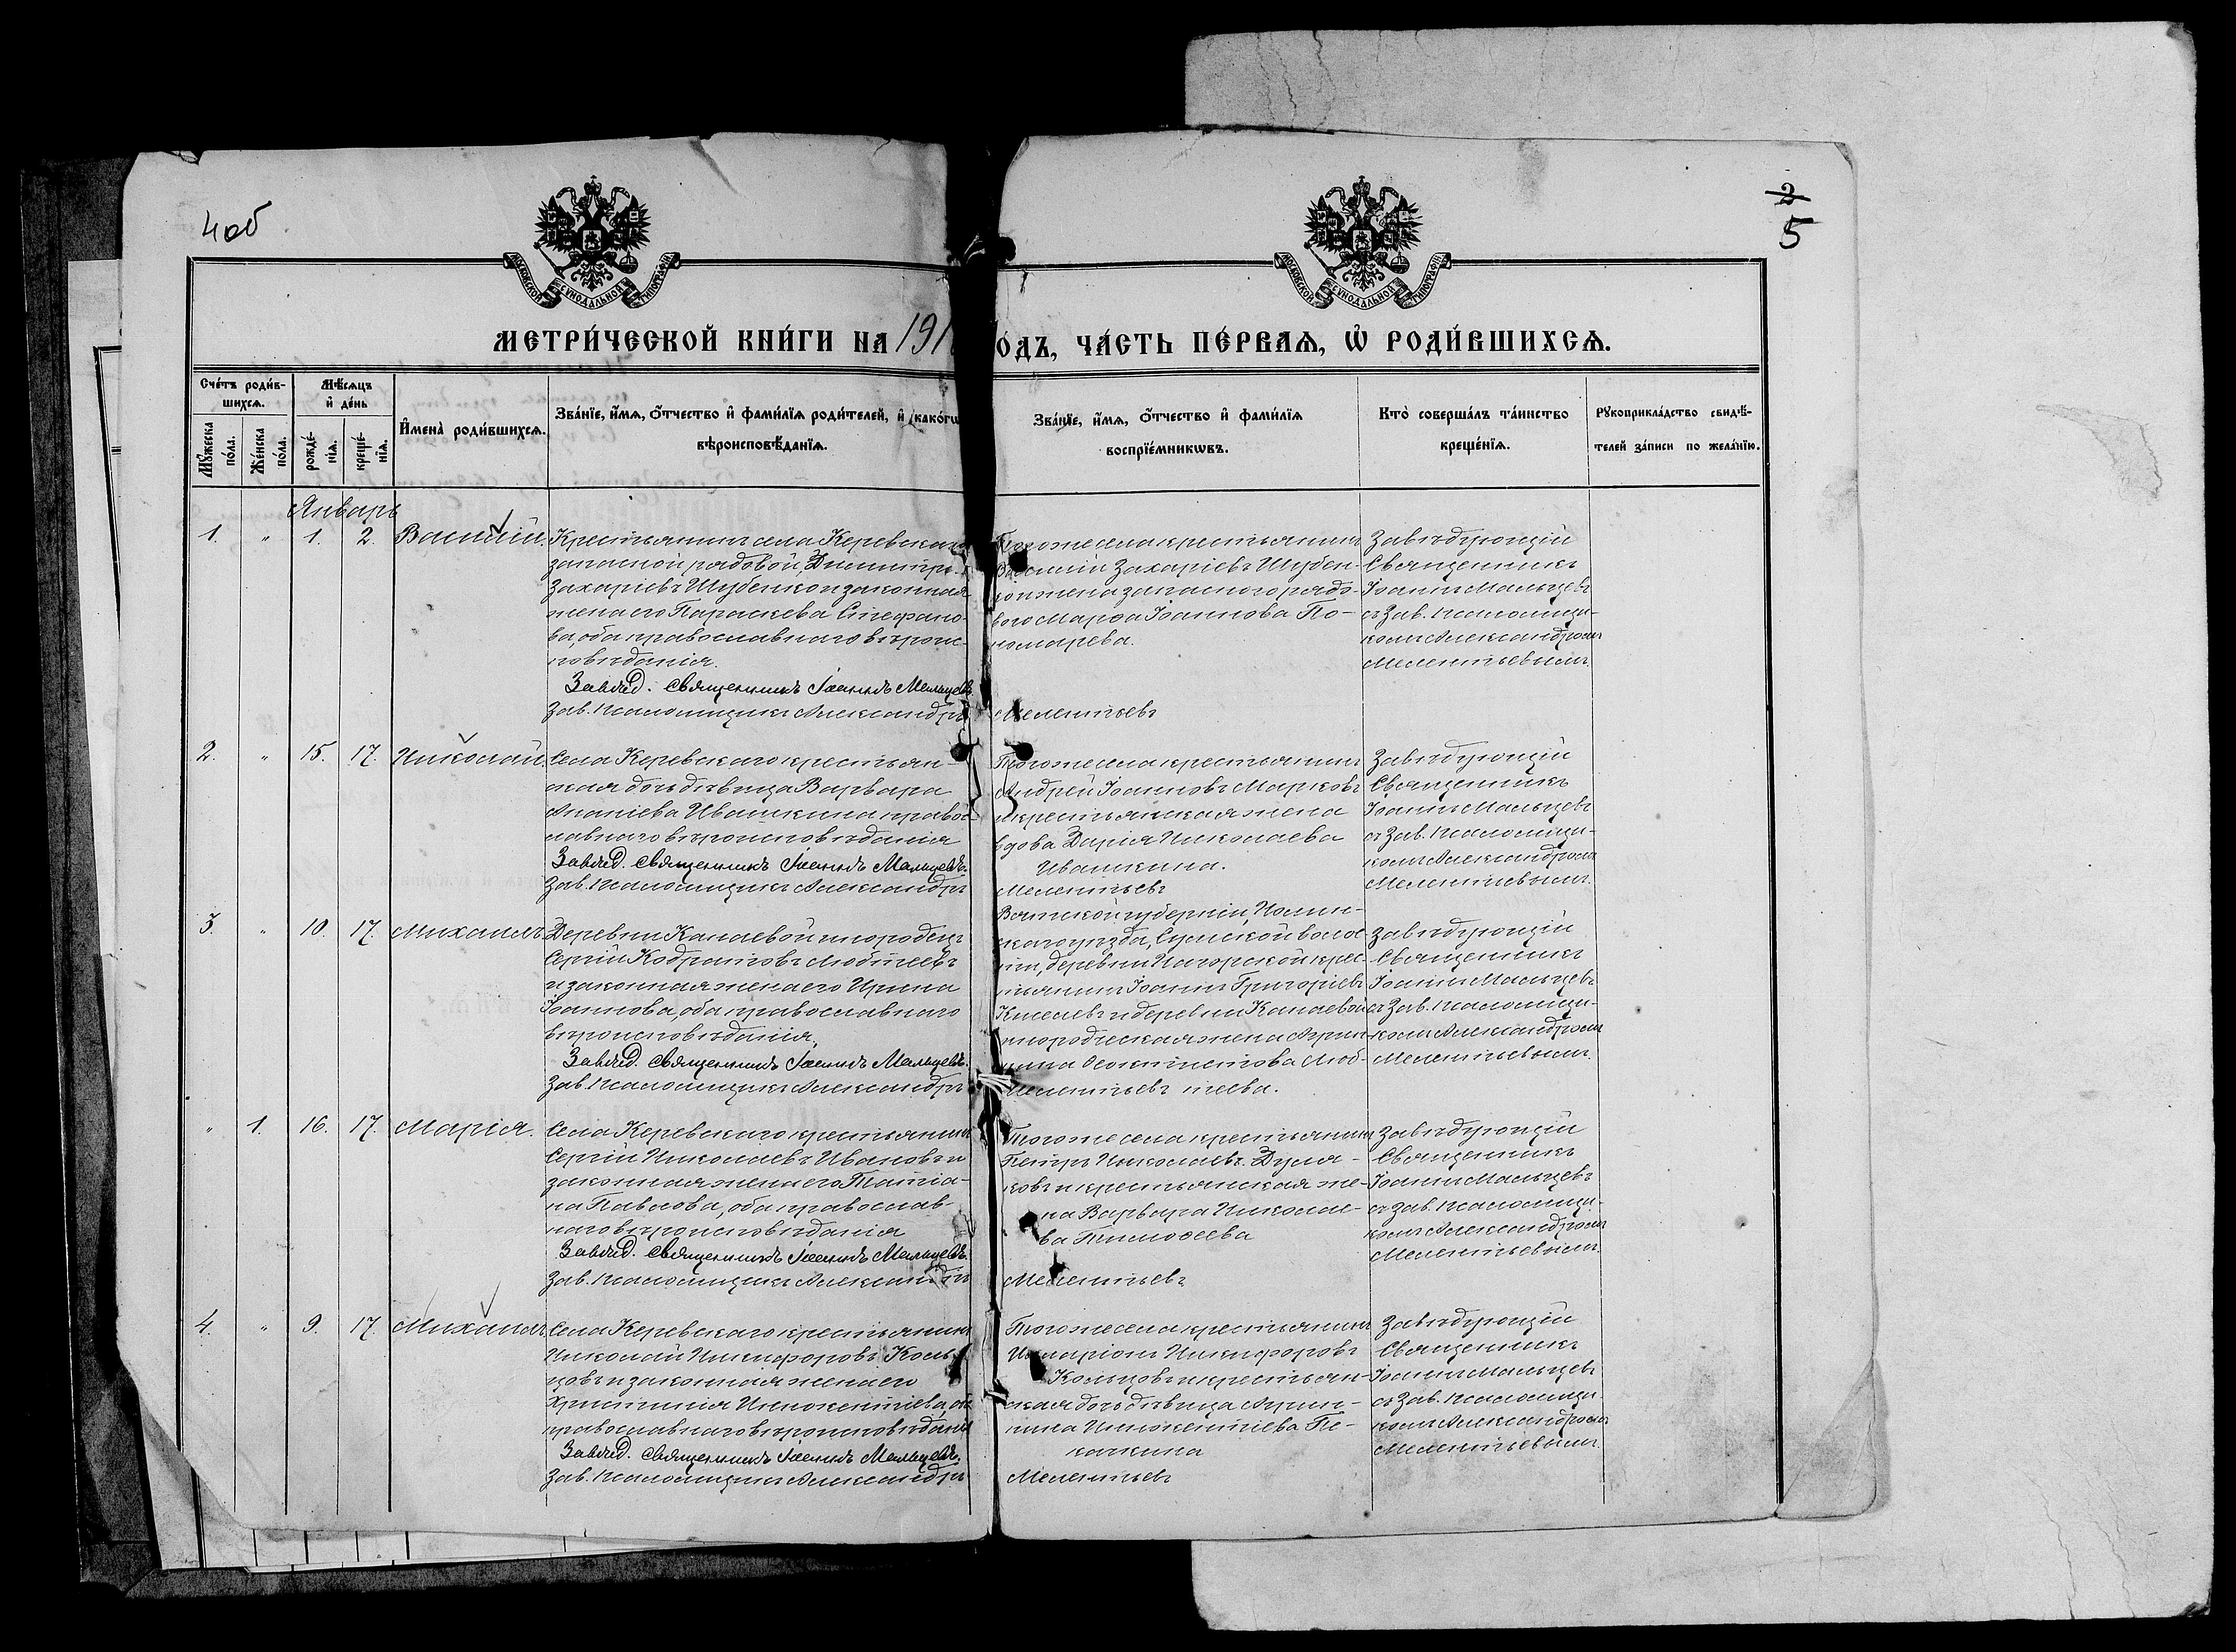 4 об
2
5
МОСКОВСКОЙ СѴНОДАЛЬНОЙ ТИПОГРАФІИ
МОСКОВСКОЙ СѴНОДАЛЬНОЙ ТИПОГРАФІИ
МЕТРИ́ЧЕСКОЙ КНИ́ГИ НА 191 О́ДЪ, ЧА́СТЬ ПЕ́РВАѦ, Ѽ РОДИ́ВШИХСѦ.
Сче́тъ роди́в-
шихсѧ.
Мꙋ́жеска по́ла.
Же́нска по́ла.
Мѣ́сѧцъ
и҆ де́нь
рожде́-
нїѧ.
креще́-
нїѧ.
И҆мена̀ роди́вшихсѧ.
Зва́нїе, и҆́мѧ, ѻ҆́тчество и҆ фами́лїѧ роди́телей, и҆ како́гѡ
вѣроисповѣ́данїѧ.
Зва́нїе, и҆́мѧ, ѻ҆́тчество и҆ фами́лїѧ
воспрїе́мникѡвъ.
Кто̀ соверша́лъ та́инство
креще́нїѧ.
Рꙋкоприкла́дство свидѣ́-
телей за́писи по жела́нїю.
Январь
1. " 1. 2. Василій.
Крестьянинъ села Керевскаго
запасной рядовой, Димитрій
Захаріевъ Шубенко и законная
жена его Параскева Стефано-
ва, оба православнаго вѣроис-
повѣданія.
Завѣд. священникъ Іоаннъ Мальцевъ.
Зав. псаломщика Александръ Мелентьевъ
Того же села крестьянинъ
Василій Захаріевъ Шубен-
ко и жена запаснаго рядо-
вого Марѳа Іоаннова По-
номарева.
Завѣдующій
Священникъ
Іоаннъ Мальцевъ
съ Зав. псаломщи-
комъ Александромъ
Мелентьевымъ.
2. " 15. 17. Николай.
Села Керевскаго крестьян-
ская дочь дѣвица Варвара
Ананіева Ивашкина правос-
лавнаго вѣроисповѣданія
Завѣд. священникъ Іоаннъ Мальцевъ.
Зав. псаломщика Александръ Мелентьевъ
Того же села крестьянинъ
Андрей Іоанновъ Марковъ
и крестьянская жена
вдова Дарія Николаева
Ивашкина.
Завѣдующій
Священникъ
Іоаннъ Мальцевъ
съ Зав. псаломщи-
комъ Александромъ
Мелентьевымъ.
3. " 10. 17. Михаилъ.
Деревни Канаевой инородецъ
Сергій Кодратовъ Любтеевъ
и законная жена его Ирина
Іоаннова, оба православнаго
вѣроисповѣданія.
Завѣд. священникъ Іоаннъ Мальцевъ.
Зав. псаломщика Александръ Мелентьевъ
Вятской губерніи, Нолин-
скаго уѣзда, Сунской волос-
ти, деревни Нагорской крес-
тьянинъ Іоаннъ Григоріевъ
Киселевъ и деревни Канаевой
инородческая жена Агрип-
пина Ѳеоктистова Люб-
теева.
Завѣдующій
Священникъ
Іоаннъ Мальцевъ
съ Зав. псаломщи-
комъ Александромъ
Мелентьевымъ.
" 1. 16. 17. Марія.
Села Керевскаго крестьянинъ
Сергій Николаевъ Ивановъ и
законная жена его Татіа-
на Павлова, оба православ-
наго вѣроисповѣданія
Завѣд. священникъ Іоаннъ Мальцевъ.
Зав. псаломщика Александръ Мелентьевъ
Того же села крестьянинъ
Петръ Николаевъ Дуля-
ковъ и крестьянская же-
на Варвара Николае-
ва Тимоѳеева
Завѣдующій
Священникъ
Іоаннъ Мальцевъ
съ Зав. псаломщи-
комъ Александромъ
Мелентьевымъ.
4. " 9. 17. Михаилъ
Села Керевскаго крестьянинъ
Николай Никифоровъ Коль-
цовъ и законная жена его
Христинія Иннокентіева, оба
православнаго вѣроисповѣданія
Завѣд. священникъ Іоаннъ Мальцевъ.
Зав. псаломщика Александръ Мелентьевъ
Того же села крестьянинъ
Иларіонъ Никифоровъ
Кольцовъ и крестьян-
ская дочь дѣвица Агрип-
пина Иннокентіева Пе-
калкина
Завѣдующій
Священникъ
Іоаннъ Мальцевъ
съ Зав. псаломщи-
комъ Александромъ
Мелентьевымъ.